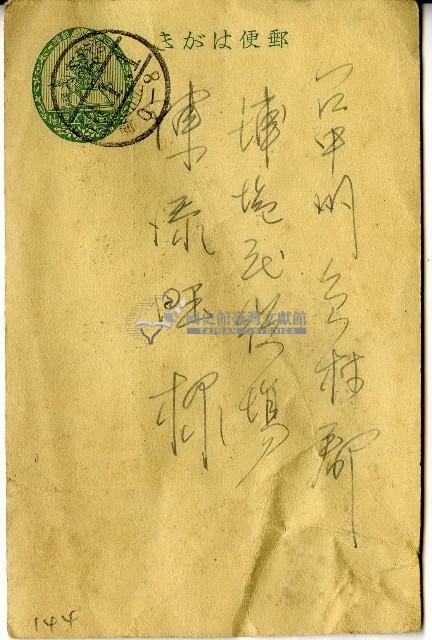 郵便はがき
台中州員林郡
埔塩庄役場
陳流 様
國史館臺灣文獻館
TAIWAN HISTORICA
144